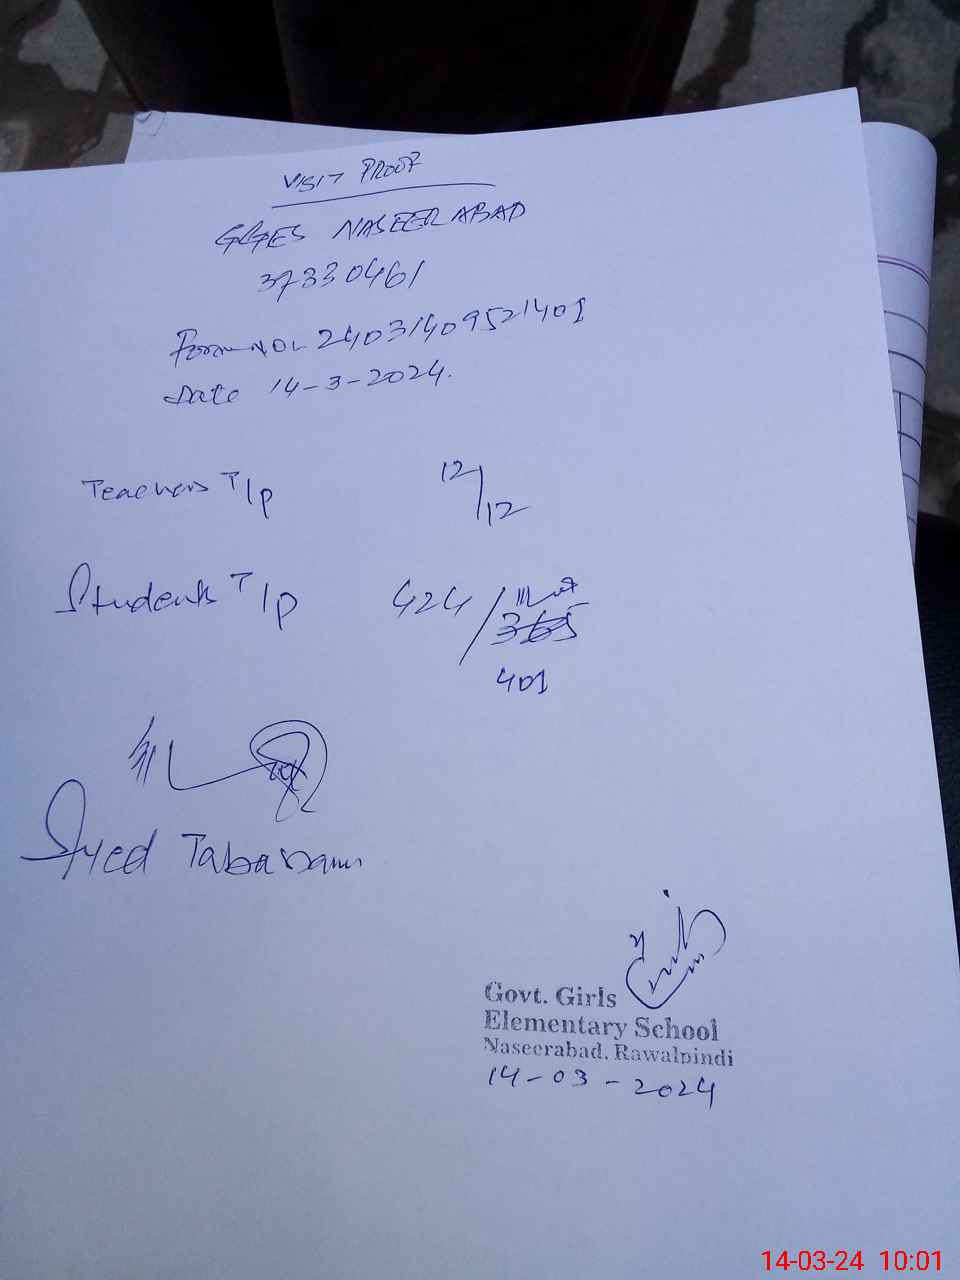 VISIT PROOF
GGES NASEERABAD
37330461
Form No. 24031409521401
Date 14-3-2024.
Teachers T/p 12/12
Students T/p 424/365
401
Syed Tabassam
Govt. Girls
Elementary School
Naseerabad, Rawalpindi
14-03-2024
14-03-24 10:01